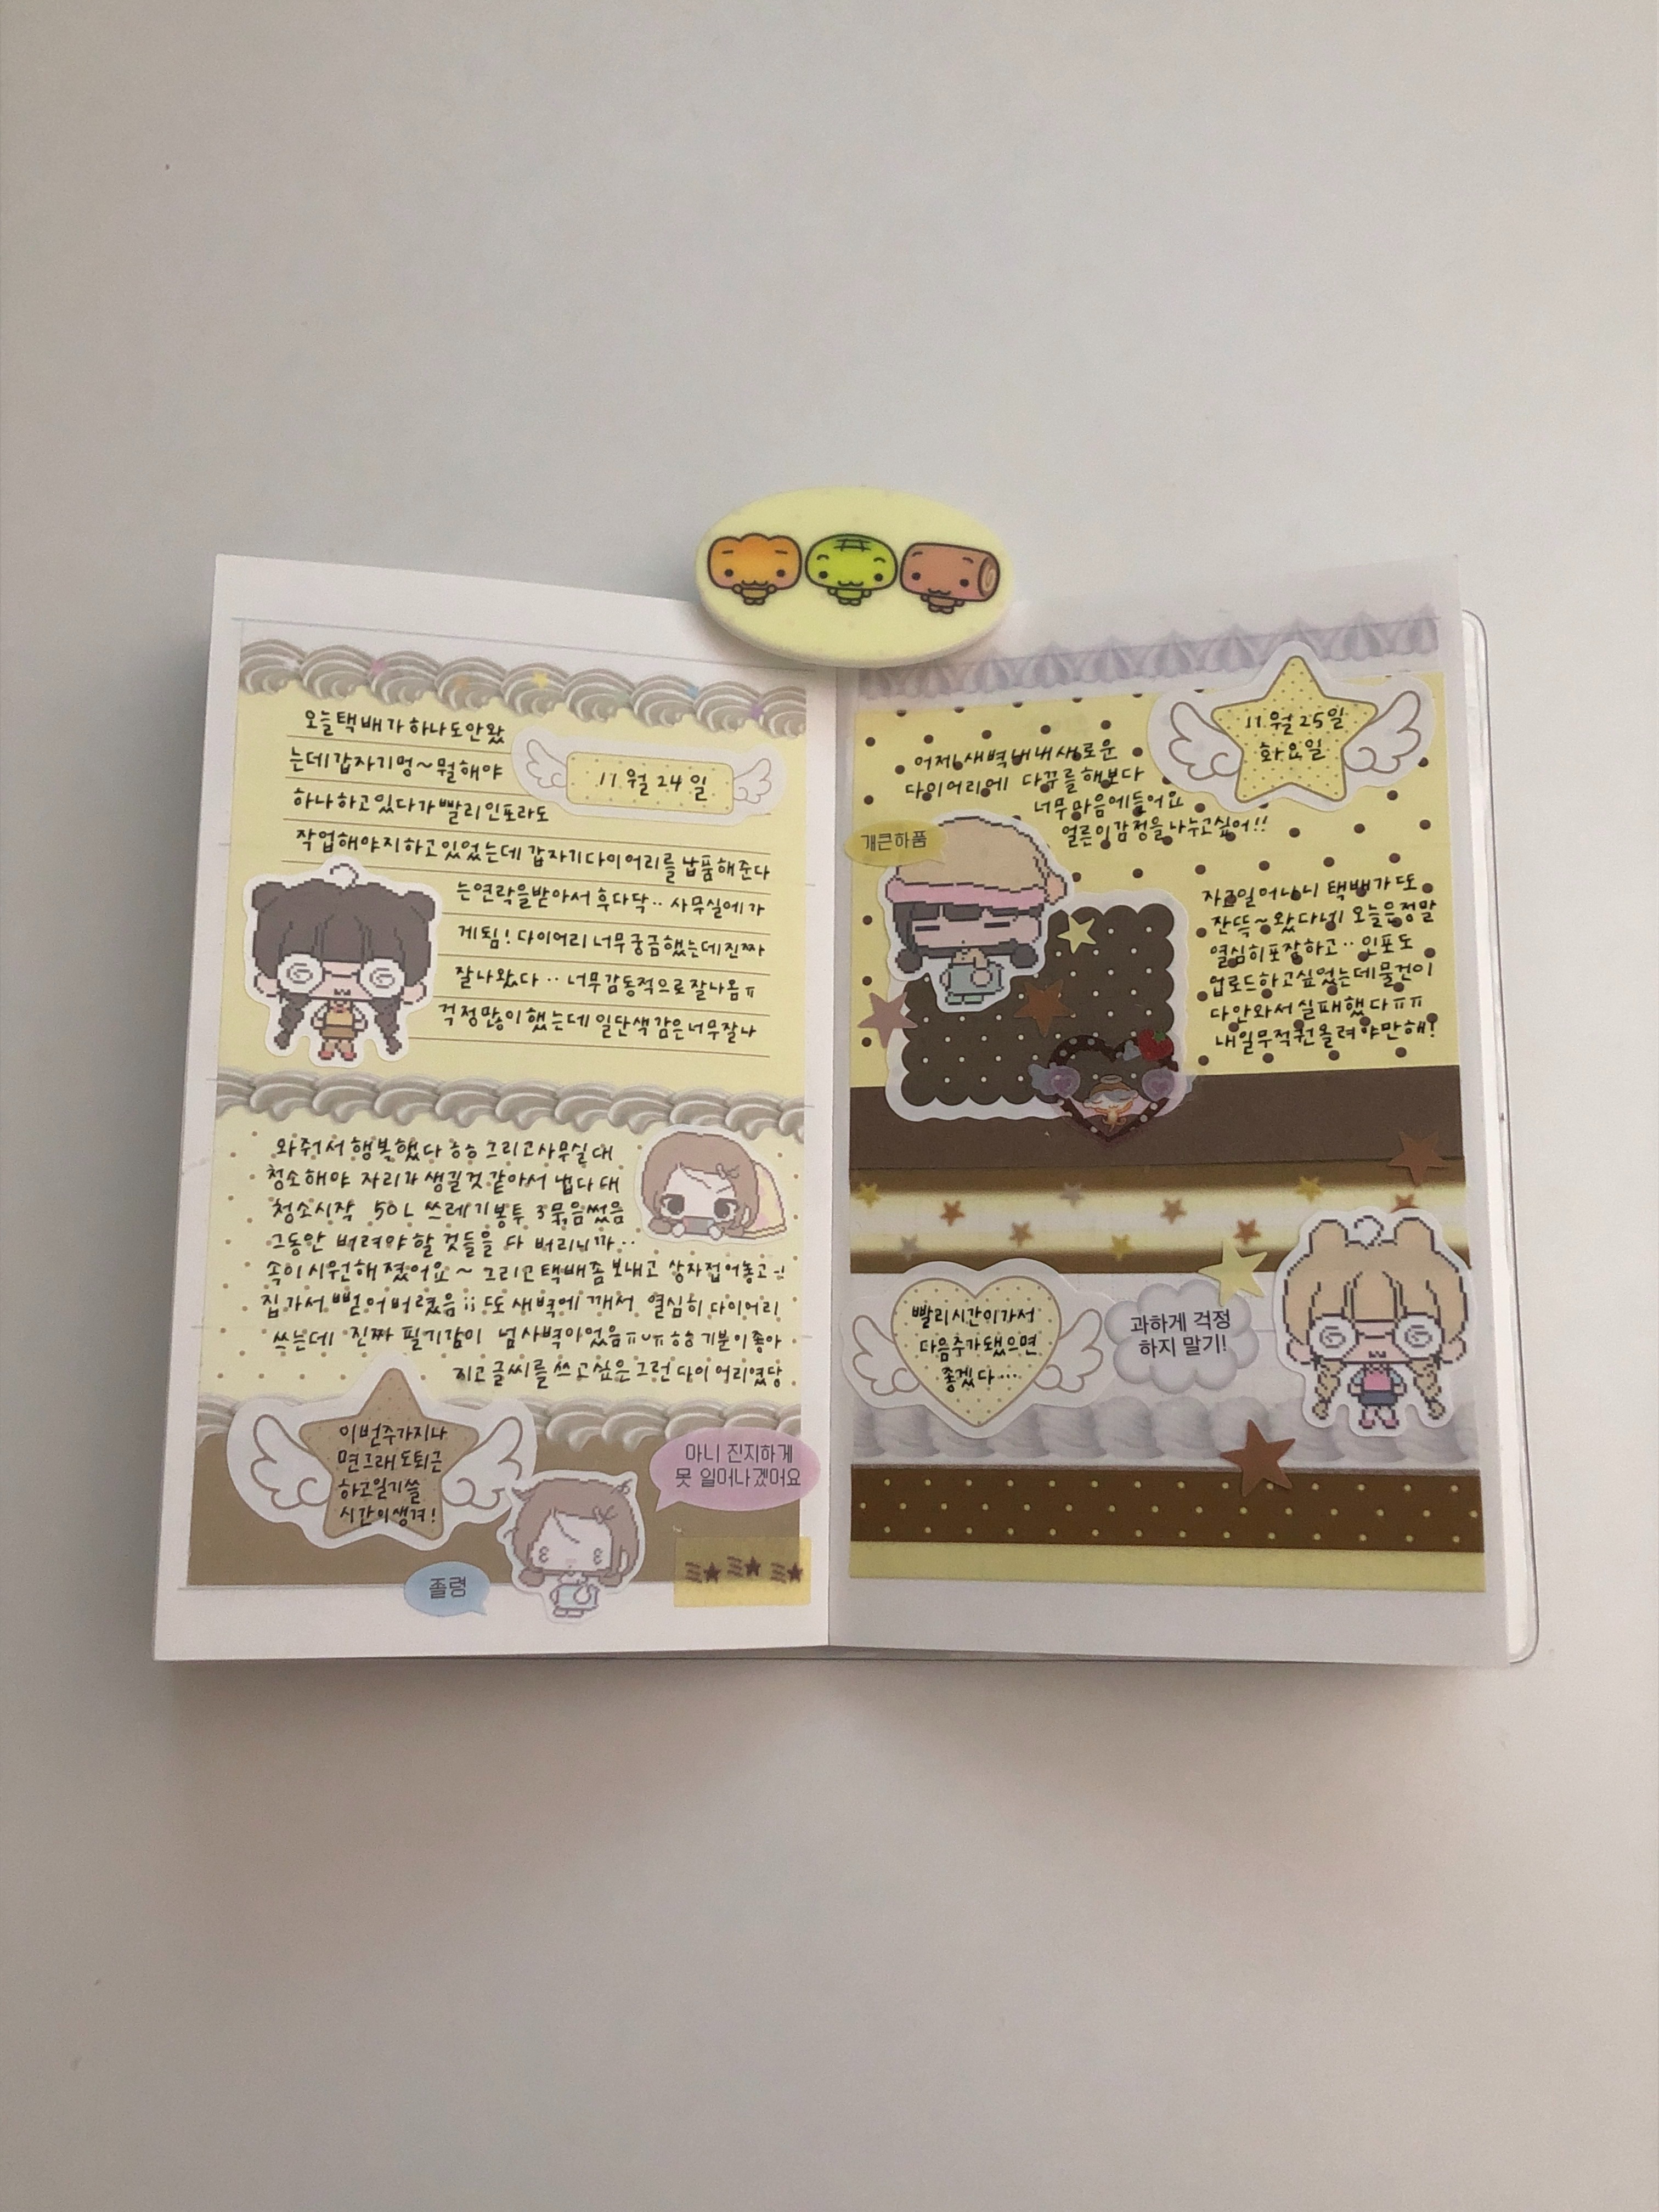 오늘 택배가 하나도 안왔
는데 갑자기 멍~ 뭘해야
11월 24일
하나 하고 있다가 빨리 인포라도
작업해야지 하고 있었는데 갑자기 다이어리를 납품해준다
는 연락을 받아서 후다닥.. 사무실에 가
게됨! 다이어리 너무 궁금했는데 진짜
잘나왔다.. 너무 감동적으로 잘나옴ㅠ
걱정많이 했는데 일단 색감은 너무 잘나
와줘서 행복했다 ㅎㅎ 그리고 사무실 대
청소해야 자리가 생길것 같아서 냅다 대
청소시작 50L 쓰레기봉투 3묶음썼음
그동안 버려야 할 것들을 다 버리니까..
속이 시원해졌어요~ 그리고 택배좀 보내고 상자접어놓고
집가서 뻗어버렸음;; 또 새벽에 깨서 열심히 다이어리
쓰는데 진짜 필기감이 넘 사벽이었음ㅠㅠ ㅎㅎ 기분이 좋아
지고 글씨를 쓰고싶은 그런 다이어리였당
이번주가 지나
면 그래도 퇴근
하고 일기쓸
시간이 생겨!
아니 진지하게
못 일어나겠어요
졸령
11월 25일
화요일
어제 새벽 내내 새로운
다이어리에 다꾸를 해보다
너무 마음에 들어요
얼른 이 감정을 나누고싶어!!
개큰하품
자고일어나니 택배가 또
잔뜩~ 왔다넹! 오늘은 정말
열심히 포장하고.. 인포도
업로드하고 싶었는데 물건이
다 안와서 실패했다ㅠㅠ
내일 무적권 올려야만해!
빨리 시간이 가서
다음주가 됐으면
좋겠다...
과하게 걱정
하지 말기!